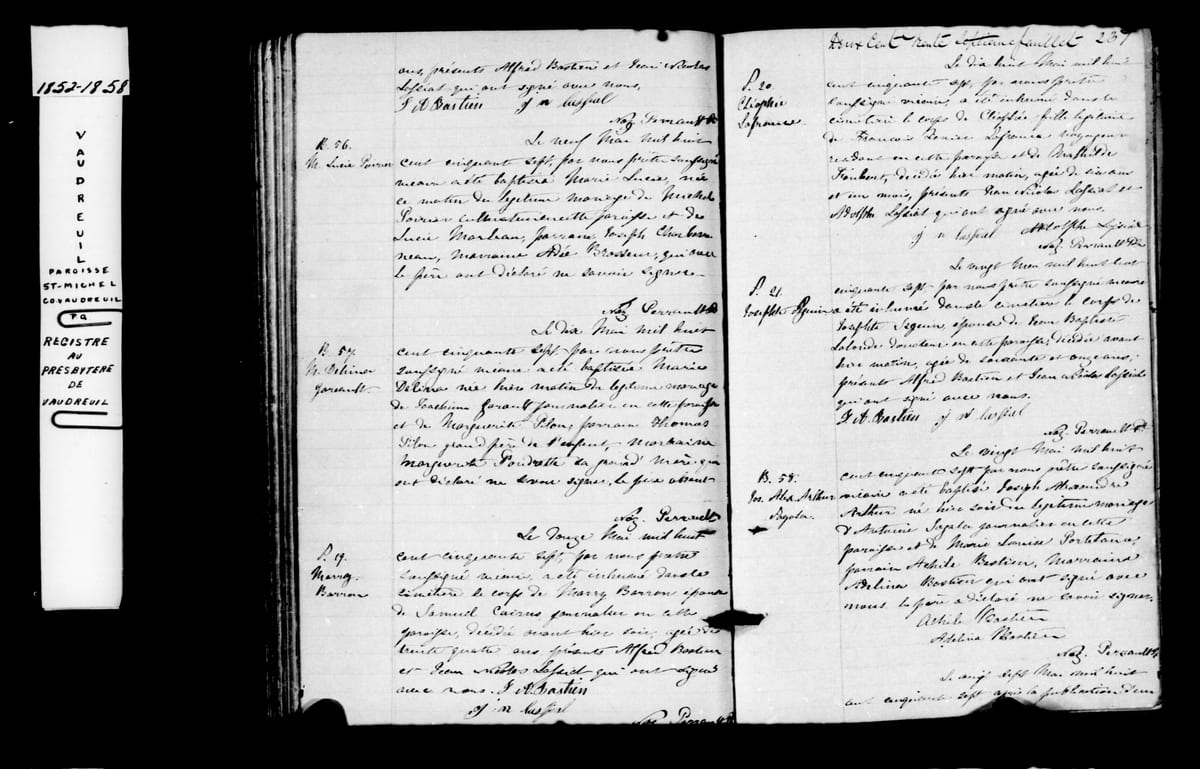 1852-1858
VAUDREUIL
PAROISSE
ST-MICHEL
CO.VAUDREUIL
P.Q
REGISTRE
AU
PRESBYTERE
DE
VAUDREUIL
ans, présents Alfred Bastien et Jean Nicolas
Lessial qui ont signé avec nous.
F A Bastien J N Lessial
Naz. Perrault Ptr
B. 56.
M. Lucie Poirier
Le neuf Mai mil huit
cent cinquante sept, par nous prêtre soussigné
vicaire a été baptisée Marie Lucie, née
ce matin du légitime mariage de Michel
Poirier cultivateur en cette paroisse et de
Lucie, parrain Joseph Charbon
neau, marraine Brasseur, qui avec
le père ont déclaré ne savoir signer.
Naz. Perrault Ptr
B. 57.
M. Delima
Le dix Mai mil huit
cent cinquante sept par nous prêtre
soussigné vicaire a été baptisée Marie
Delima née hier matin du légitime mariage
de Joachim journalier en cette paroisse
et de Marguerite Pilon, parrain Thomas
Pilon grand père de l'enfant, marraine
Marguerite Poudrette sa grand' mère qui
ont déclaré ne savoir signer, le père absent
Naz. Perrault
S. 19.
Marry
Barron
Le douze Mai mil huit
cent cinquante sept, par nous prêtre
soussigné vicaire, a été inhumé dans le
cimetière le corps de Marry Barron épouse
de Samuel Cairns journalier en cette
paroisse, décédée avant hier soir, agée de
trente quatre ans présents Alfred Bastien
et Jean Nicolas Lessial qui ont signé
avec nous. F A Bastien
J N Lessial
Naz. Perrault Ptr
Deux Cent trente septième feuillet 237
S. 20.
Cléophée
Lafrance
Le dix huit Mai mil huit
cent cinquante sept, par nous prêtre
soussigné vicaire, a été inhumé dans le
cimetière le corps de Cléophée fille légitime
de François Lafrance voyageur
résidant en cette paroisse et de Mathilde
décédée hier matin, agée de six ans
et un mois, présents Jean Nicolas Lessial et
Adolphe Lessial qui ont signé avec nous.
J N Lessial Adolphe Lessial
Naz. Perrault Ptr
S. 21.
Josephte Séguin
Le vingt Mai mil huit cent
cinquante sept par nous prêtre soussigné vicaire
a été inhumé dans le cimetière le corps de
Josephte Séguin, épouse de Jean Baptiste
Lalonde en cette paroisse, décédée avant
hier matin, agée de soixante et onze ans,
présents Alfred Bastien et Jean Nicolas Lessial
qui ont signé avec nous.
F. A. Bastien J N Lessial
Naz. Perrault Ptr
B. 58.
Jos. Alex. Arthur
Sagala
Le vingt Mai mil huit
cent cinquante sept par nous prêtre soussigné
vicaire a été baptisé Joseph Alexandre
Arthur né hier soir du légitime mariage
d'Antoine Sagala journalier en cette
paroisse et de Marie Louise
parrain Achile Bastien, Marraine
Adelina Bastien qui ont signé avec
nous le père a déclaré ne savoir signer.
Achile Bastien
Adelina Bastien
Naz. Perrault Ptr
Le vingt sept Mai mil huit
cent cinquante sept après la publication d'un